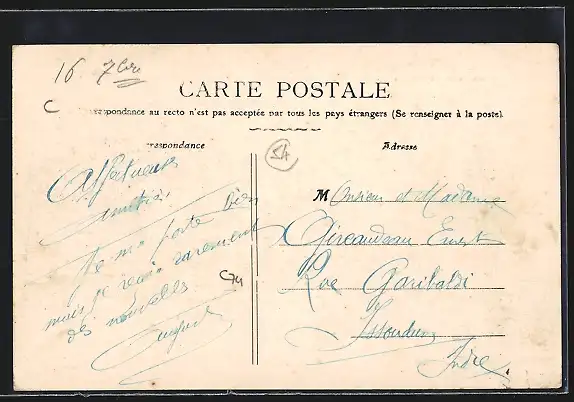 16 7bre
CARTE POSTALE
C respondance au recto n'est pas acceptée par tous les pays étrangers (Se renseigner à la poste).
respondance
Adresse
54
Affectueuses
amitiés
Je me porte bien
mais je reçois rarement
des nouvelles
C74
Monsieur et Madame
Gireaudeau Ernest
Rue Garibaldi
Issoudun
Indre